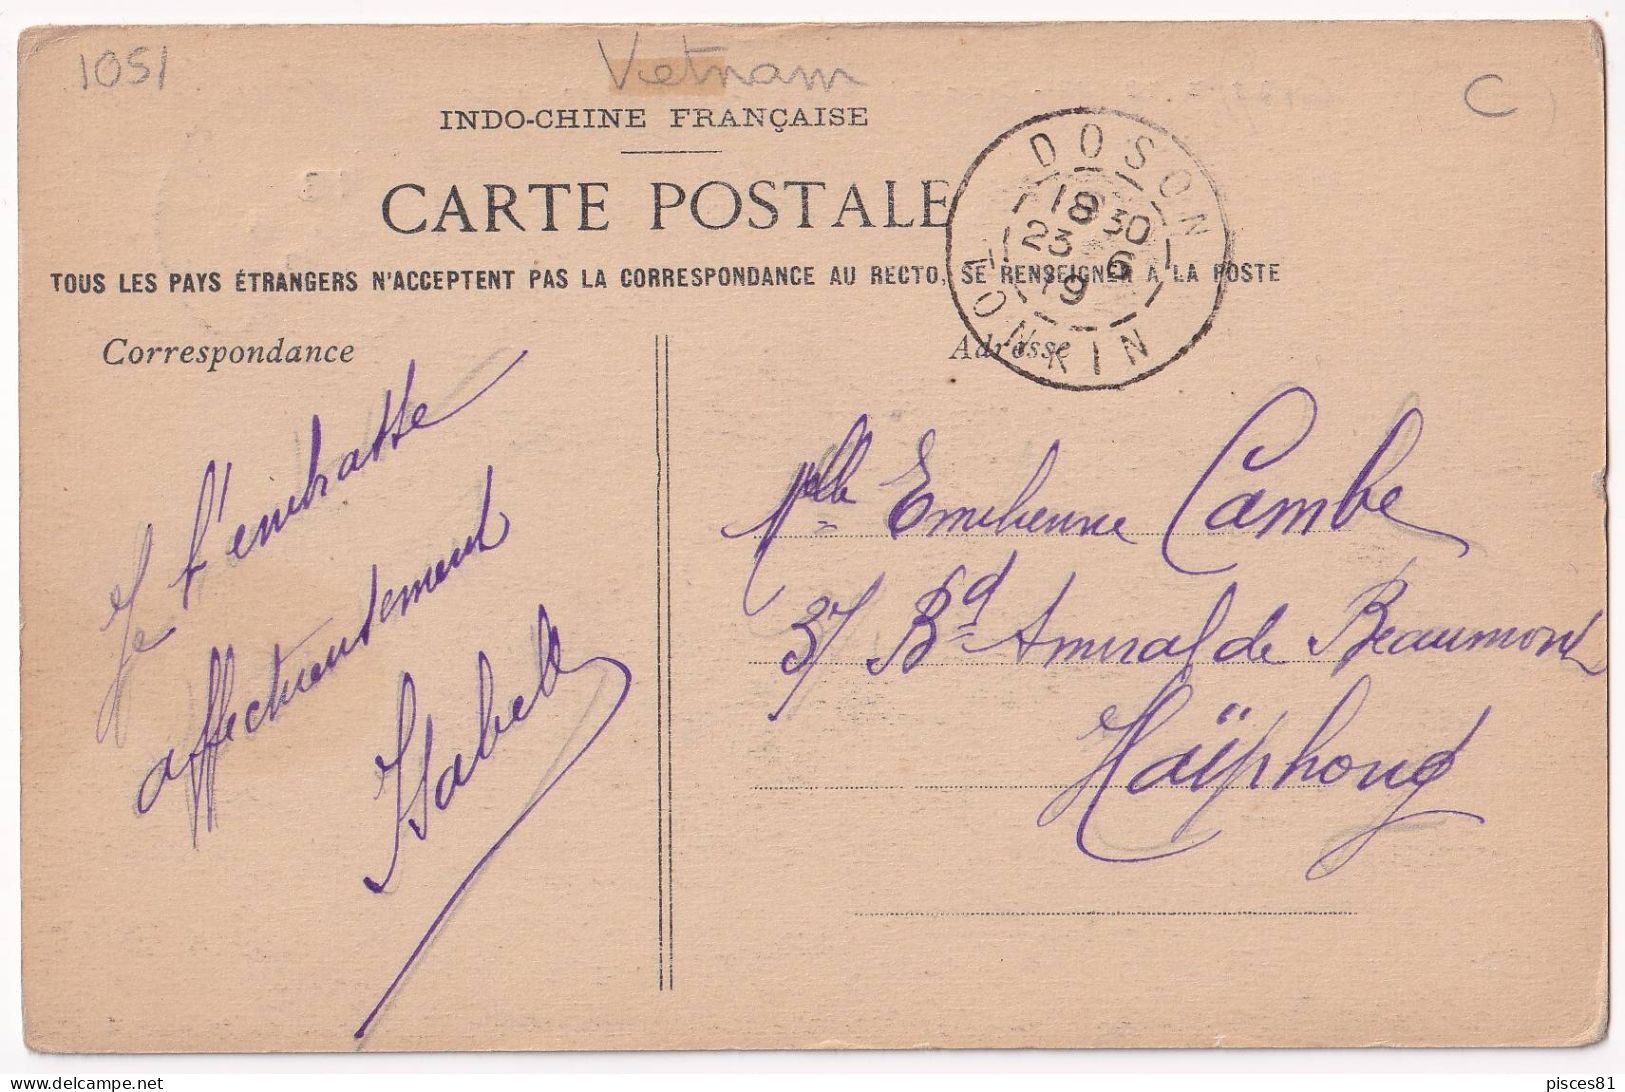 1051
Vietnam
C
INDO-CHINE FRANÇAISE
CARTE POSTALE
DOSON
18 30
23 6
19
TONKIN
TOUS LES PAYS ÉTRANGERS N'ACCEPTENT PAS LA CORRESPONDANCE AU RECTO, SE RENSEIGNER A LA POSTE
Correspondance
Je t'embrasse
affectueusement
Isabelle
Adresse
Melle Emilienne Cambe
37 Bd Amiral de Beaumont
Haïphong
pisces81